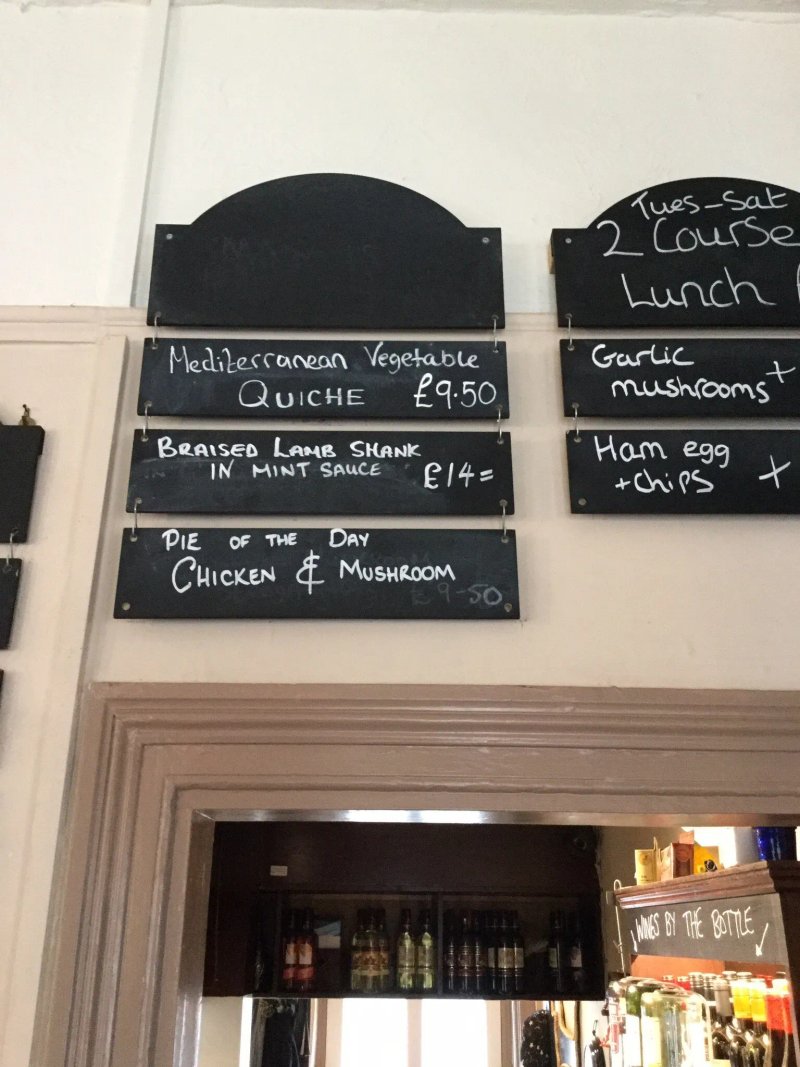 Mediterranean Vegetable
QUICHE £9.50
BRAISED LAMB SHANK
IN MINT SAUCE £14=
PIE OF THE DAY
CHICKEN & MUSHROOM
£9-50
Tues-Sat
2 Course
Lunch
Garlic
mushrooms +
Ham egg
+chips +
WINES BY THE BOTTLE